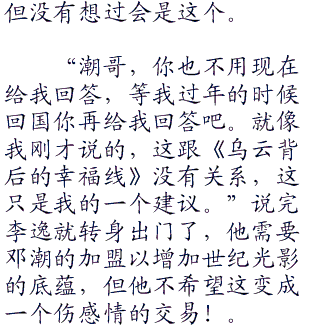 但没有想过会是这个。
“潮哥，你也不用现在
给我回答，等我过年的时候
回国你再给我回答吧。就像
我刚才说的，这跟《乌云背
后的幸福线》没有关系，这
只是我的一个建议。”说完
李逸就转身出门了，他需要
邓潮的加盟以增加世纪光影
的底蕴，但他不希望这变成
一个伤感情的交易！。